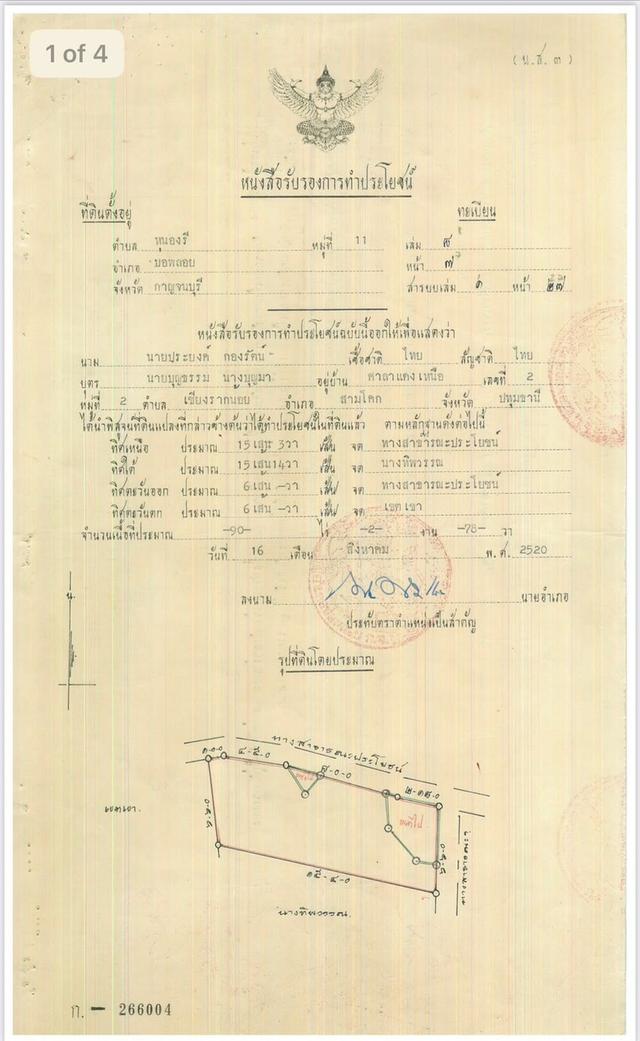 1 of 4
(น.ส.๓)
หนังสือรับรองการทำประโยชน์
ที่ดินตั้งอยู่ ทะเบียน
ตำบล หนองรี หมู่ที่ 11 เล่ม
อำเภอ บ่อพลอย หน้า
จังหวัด กาญจนบุรี สารบบเล่ม หน้า
หนังสือรับรองการทำประโยชน์ฉบับนี้ออกให้เพื่อแสดงว่า
นาม นายประยงค์ กองรัตน์ เชื้อชาติ ไทย สัญชาติ ไทย
บุตร นายบุญธรรม นางบุญมา อยู่บ้าน ศาลาแดงเหนือ เลขที่ 2
หมู่ที่ 2 ตำบล เชียงรากน้อย อำเภอ สามโคก จังหวัด ปทุมธานี
ได้นำพิสูจน์ที่ดินแปลงที่กล่าวข้างต้นว่าได้ทำประโยชน์ในที่ดินแล้ว ตามหลักฐานดังต่อไปนี้
ทิศเหนือ ประมาณ 15 เส้น 3 วา จด ทางสาธารณะประโยชน์
ทิศใต้ ประมาณ 15 เส้น 14 วา จด นางทิพวรรณ
ทิศตะวันออก ประมาณ 6 เส้น - วา จด ทางสาธารณะประโยชน์
ทิศตะวันตก ประมาณ 6 เส้น - วา จด เขตเขา
จำนวนเนื้อที่ประมาณ -90- ไร่ -2- งาน -78- วา
วันที่ 16 เดือน สิงหาคม พ.ศ. 2520
ลงนาม นายอำเภอ
ประทับตราตำแหน่งเป็นสำคัญ
รูปที่ดินโดยประมาณ
ทางสาธารณะประโยชน์
เขตเขา
๑๕-๔-๐
นางทิพวรรณ
ก. - 266004